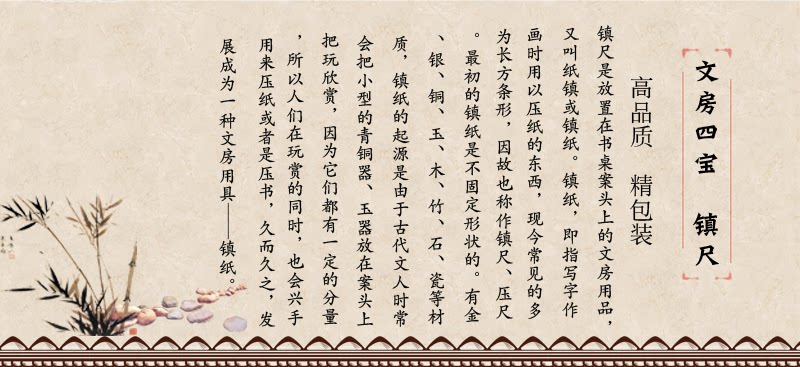 文房四宝 镇尺
高品质 精包装
镇尺是放置在书桌案头上的文房用品，
又叫纸镇或镇纸。镇纸，即指写字作
画时用以压纸的东西，现今常见的多
为长方条形，因故也称作镇尺、压尺
。最初的镇纸是不固定形状的。有金
、银、铜、玉、木、竹、石、瓷等材
质，镇纸的起源是由于古代文人时常
会把小型的青铜器、玉器放在案头上
把玩欣赏，因为它们都有一定的分量
，所以人们在玩赏的同时，也会兴手
用来压纸或者是压书，久而久之，发
展成为一种文房用具——镇纸。